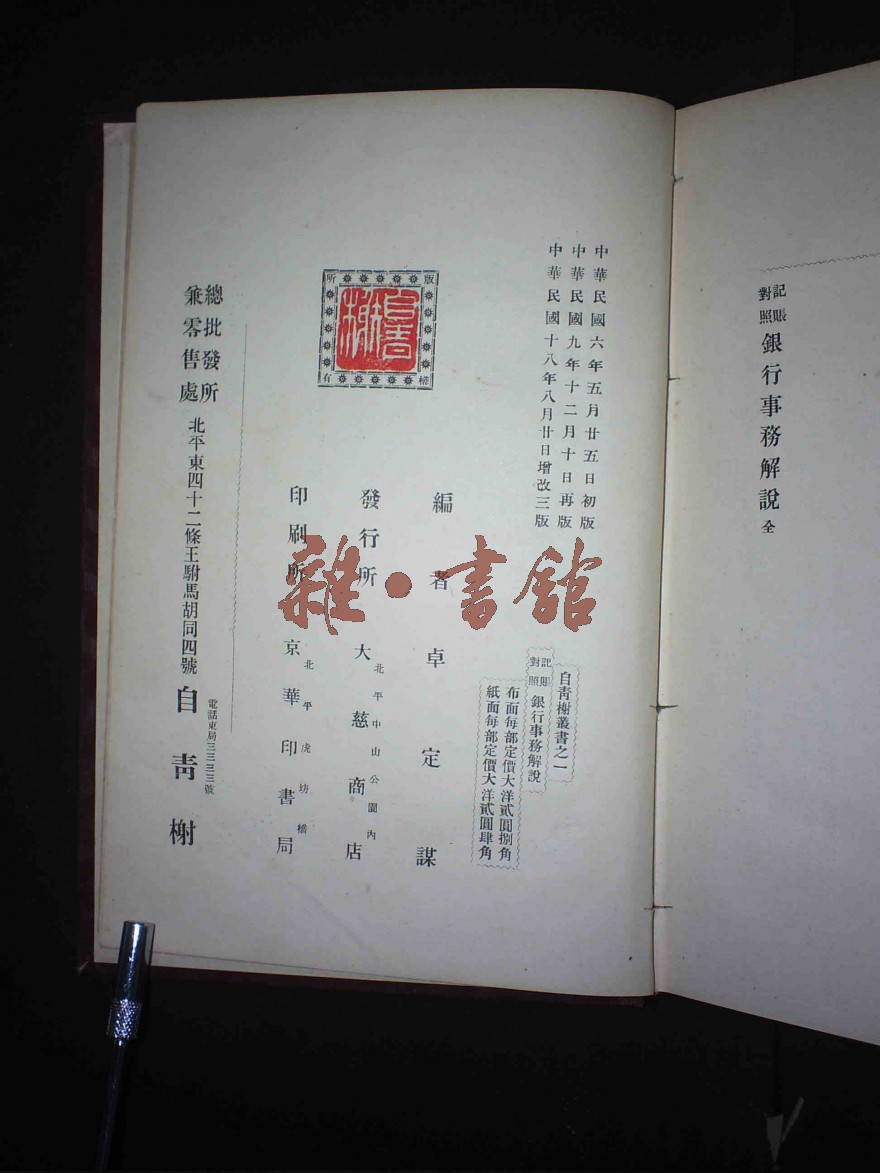 記賬
對照
銀行事務解說 全
中華民國六年五月廿五日初版
中華民國九年十二月十日再版
中華民國十八年八月廿日增改三版
自青榭叢書之一
記賬
對照
銀行事務解說
布面每部定價大洋貳圓捌角
紙面每部定價大洋貳圓肆角
版權所有
自青榭
編者卓定謀
發行所
北平中山公園內
大慈商店
印刷所
北平虎坊橋
京華印書局
總批發所
兼零售處
北平東四十二條王駙馬胡同四號
電話東局三三三三號
自青榭
雜·書館